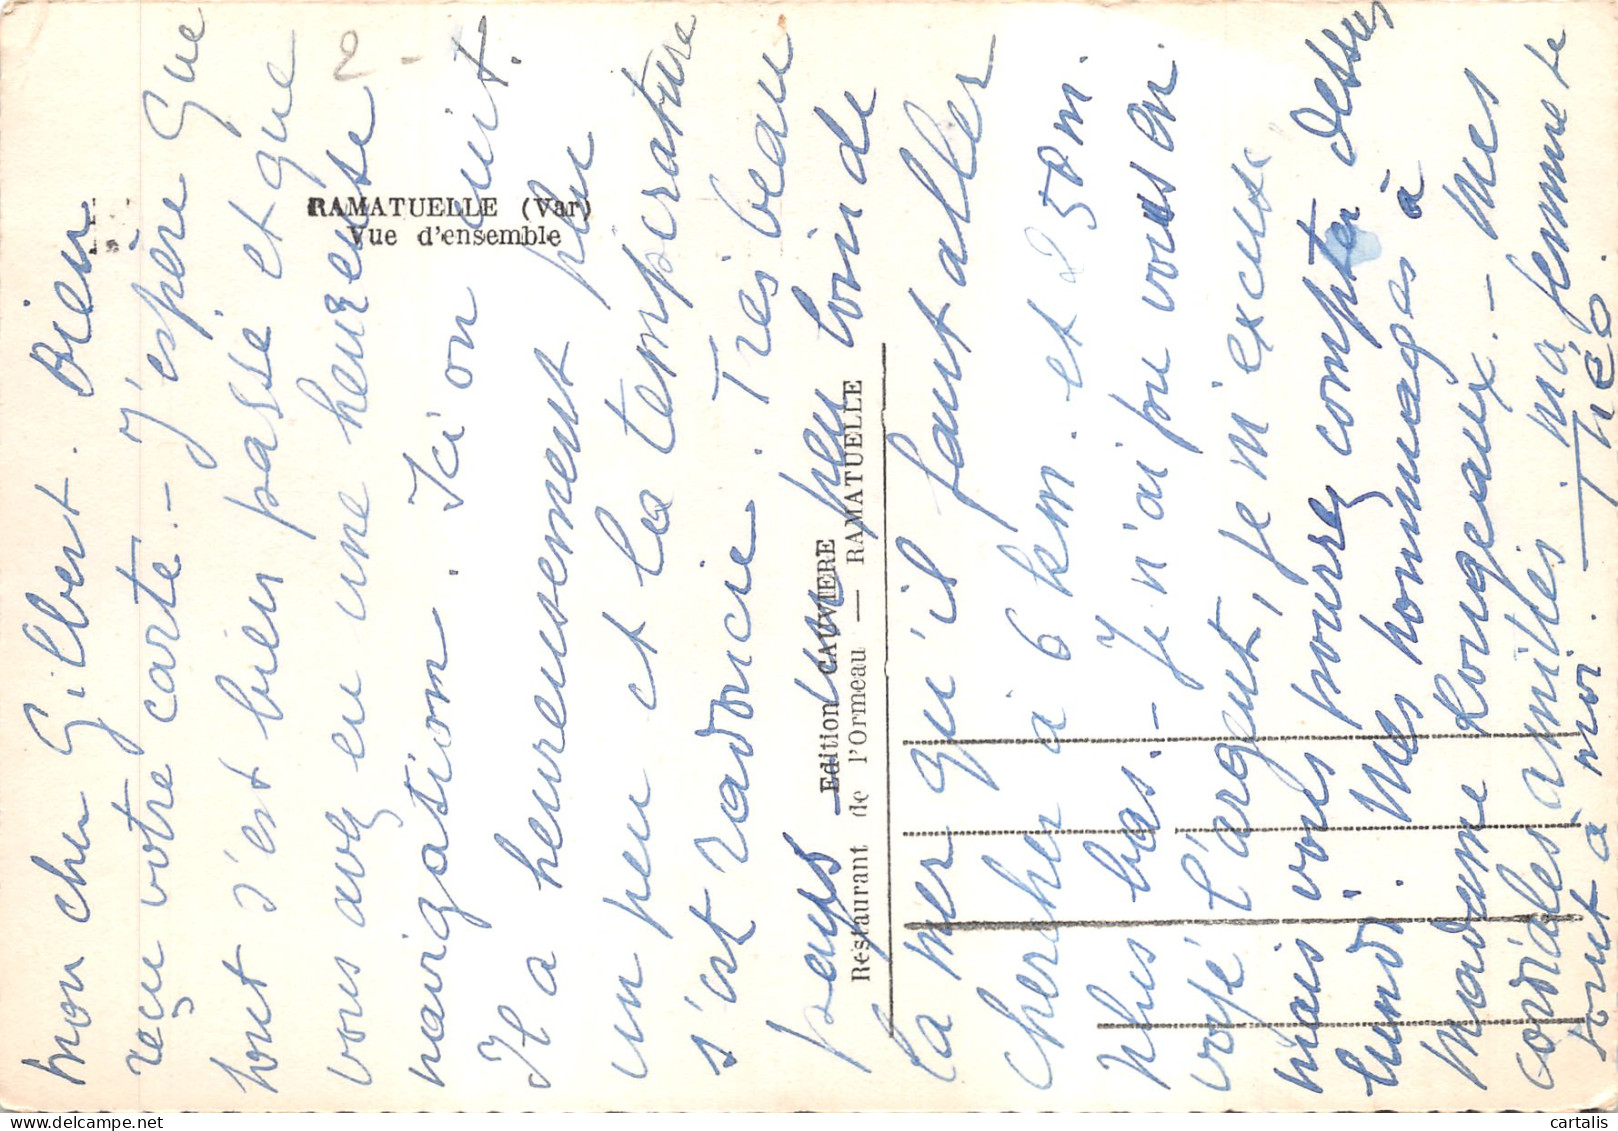 2 -
RAMATUELLE (Var)
Vue d'ensemble
Edition CAUVIERE
Restaurant de l'Ormeau — RAMATUELLE
mon cher Gilbert. Bien
reçu votre carte. - J'espère que
tout s'est bien passé et que
vous avez eu une heureuse
navigation. Ici on cuit.
Il a heureusement plu
un peu et la température
s'est radoucie. Très beau
pays un peu loin de
la mer qu'il faut aller
chercher à 6 km. et 250 m.
plus bas. - Je n'ai pu vous en
l'argent, je m'excuse
mais vous pourrez compter dessus
lundi. Mes hommages à
madame Rougeaux. - Mes
cordiales amitiés. ma femme te
tout à moi. Théo.
cartalis